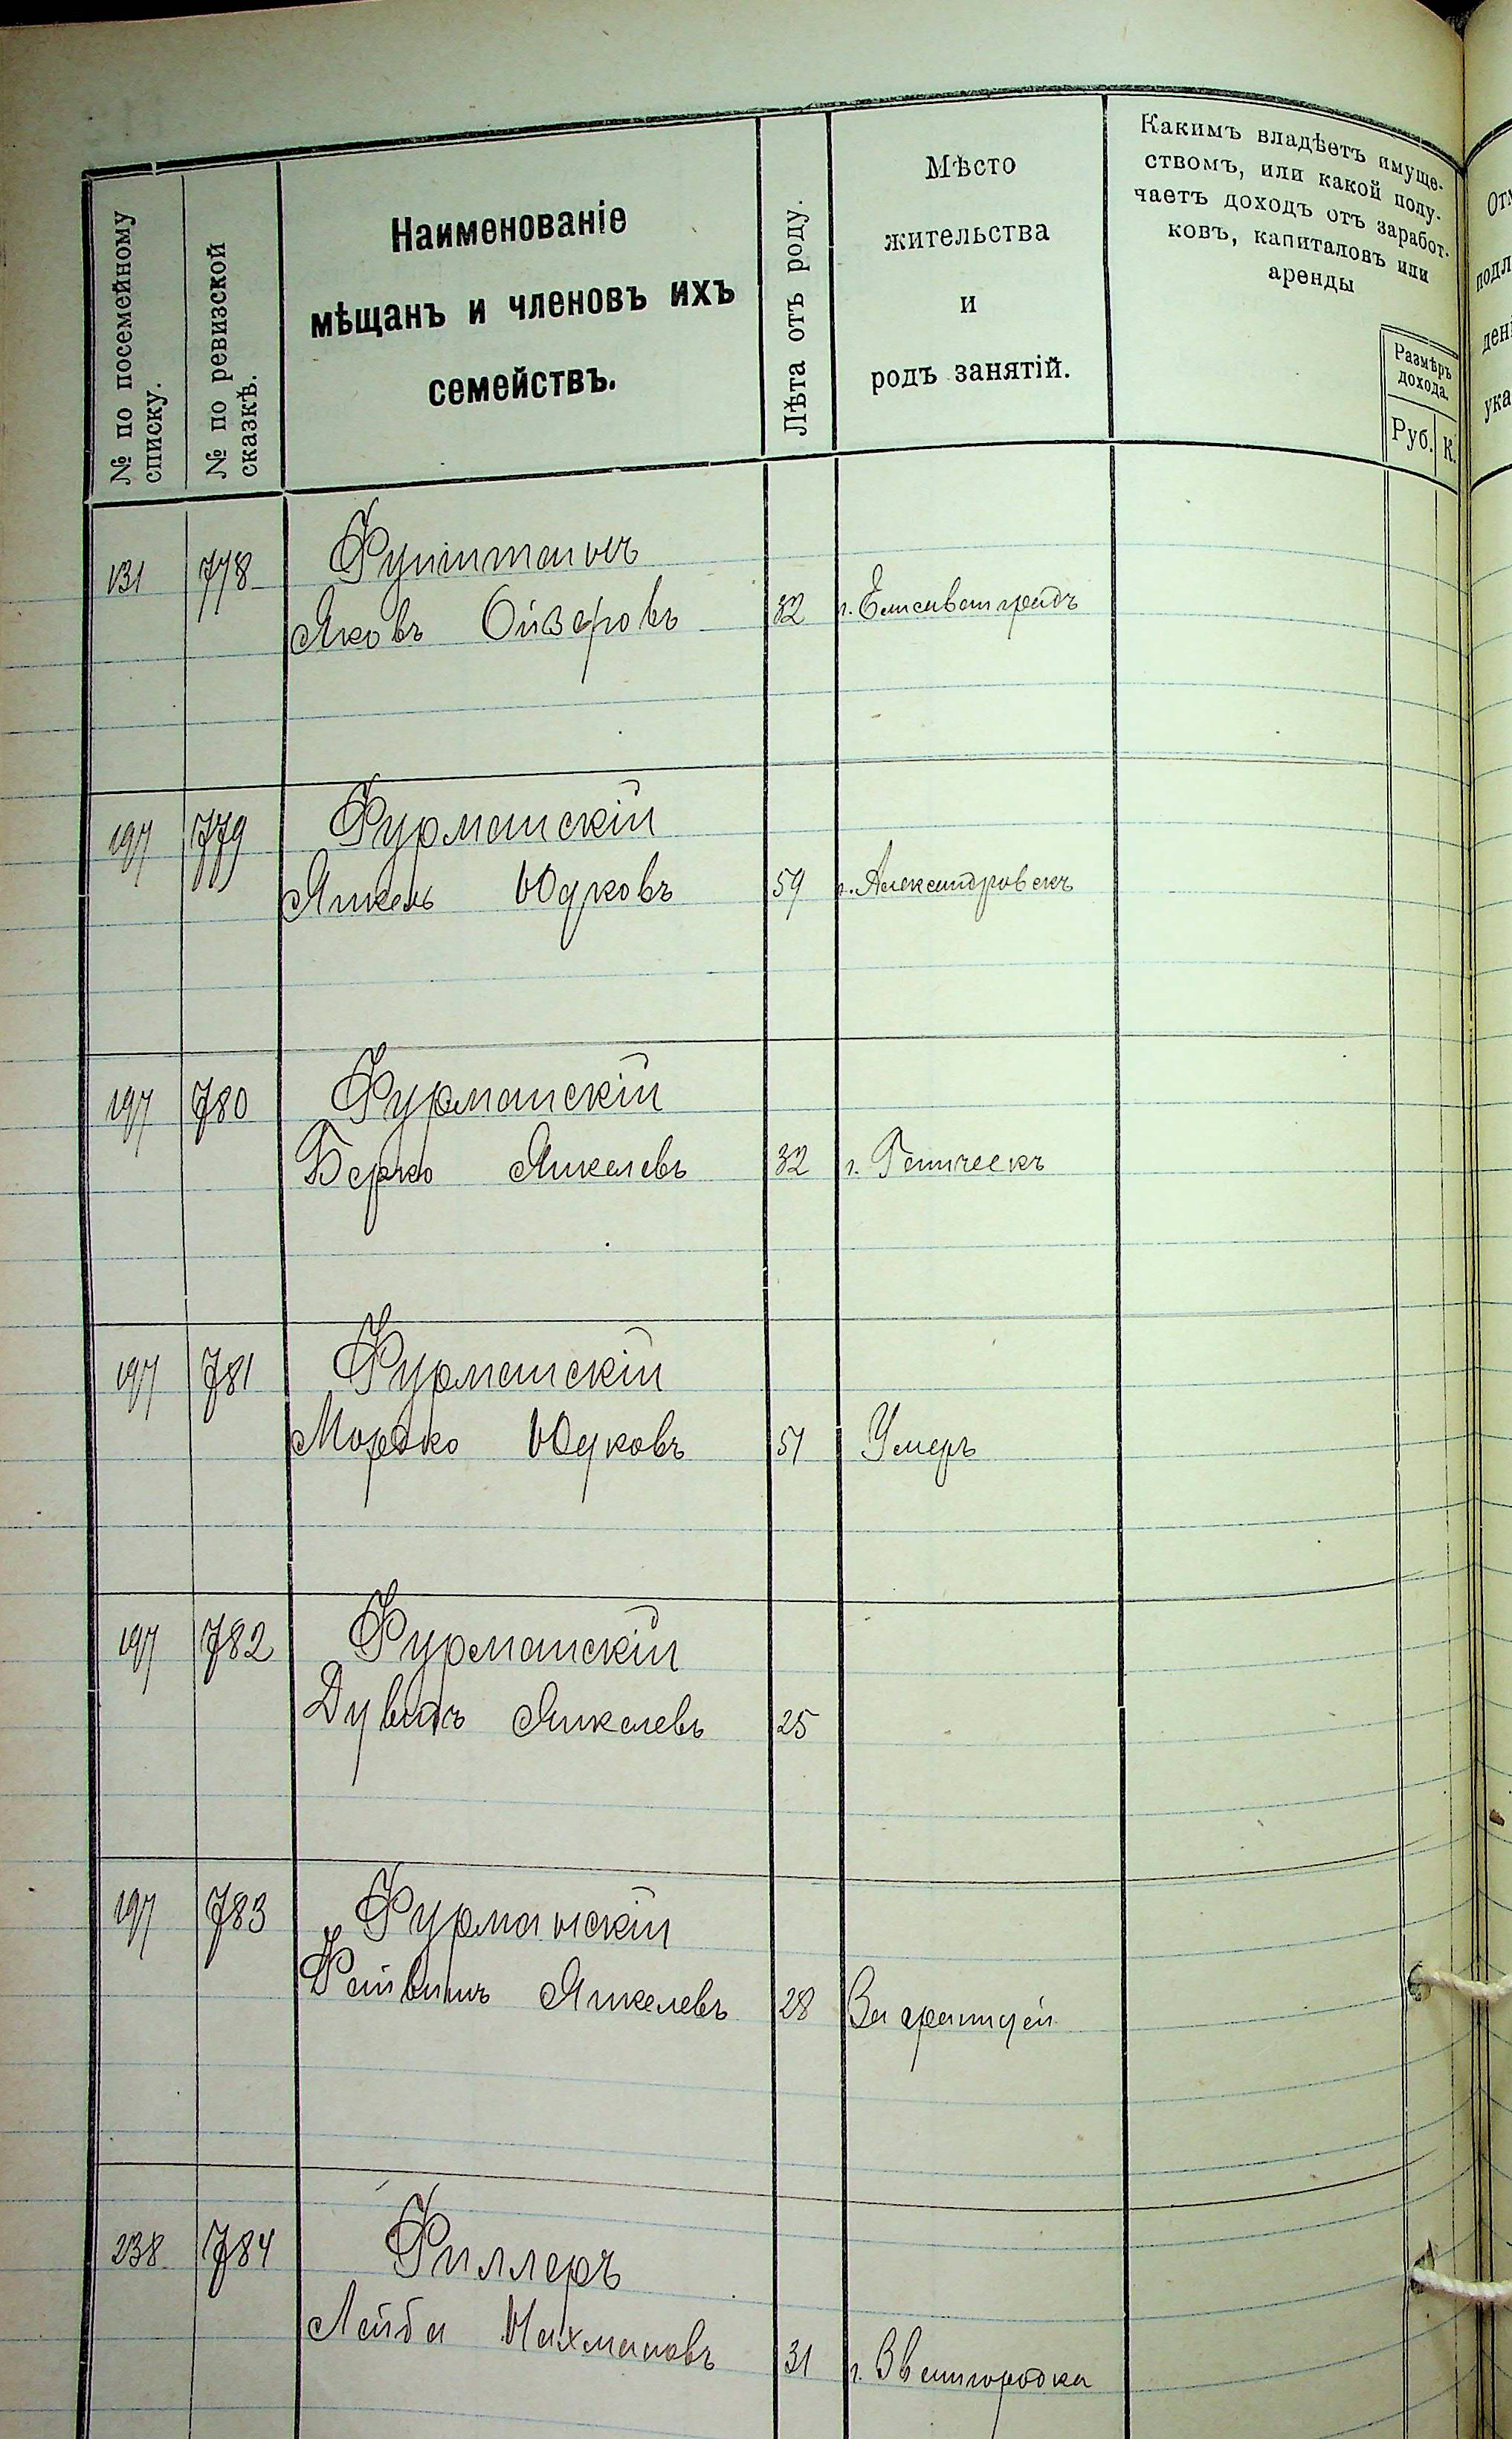 № по посемейному
списку.
№ по ревизской
сказкѣ.
Наименованіе
мѣщанъ и членовъ ихъ
семействъ.
Лѣта отъ роду.
Мѣсто
жительства
и
родъ занятій.
Какимъ владѣетъ имуще-
ствомъ, или какой полу-
чаетъ доходъ отъ заработ-
ковъ, капиталовъ или
аренды
Размѣръ
дохода.
Руб. К.
131 778
Яковъ Ойзеровъ 32 г. Елисаветградъ
197 779 Фурманскій
Янкель Юдковъ 59 г. Александровскъ
197 780 Фурманскій
Берко Янкелевъ 32 г. Геническъ
197 781 Фурманскій
Мордко Юдковъ 51 Умеръ
197 782 Фурманскій
Дувидъ Янкелевъ 25
197 783 Фурманскій
Фейвишъ Янкелевъ 28 За границей
238 784 Филлеръ
Лейба Нахмановъ 31 г. Звенигородка